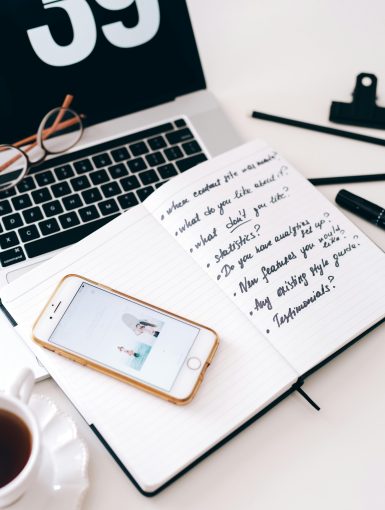 39
• where content file was made?
• what do you like about it?
• what don't you like?
• statistics?
• Do you have analytics set up?
• New features you would like?
• Any existing style guide?
• Testimonials?